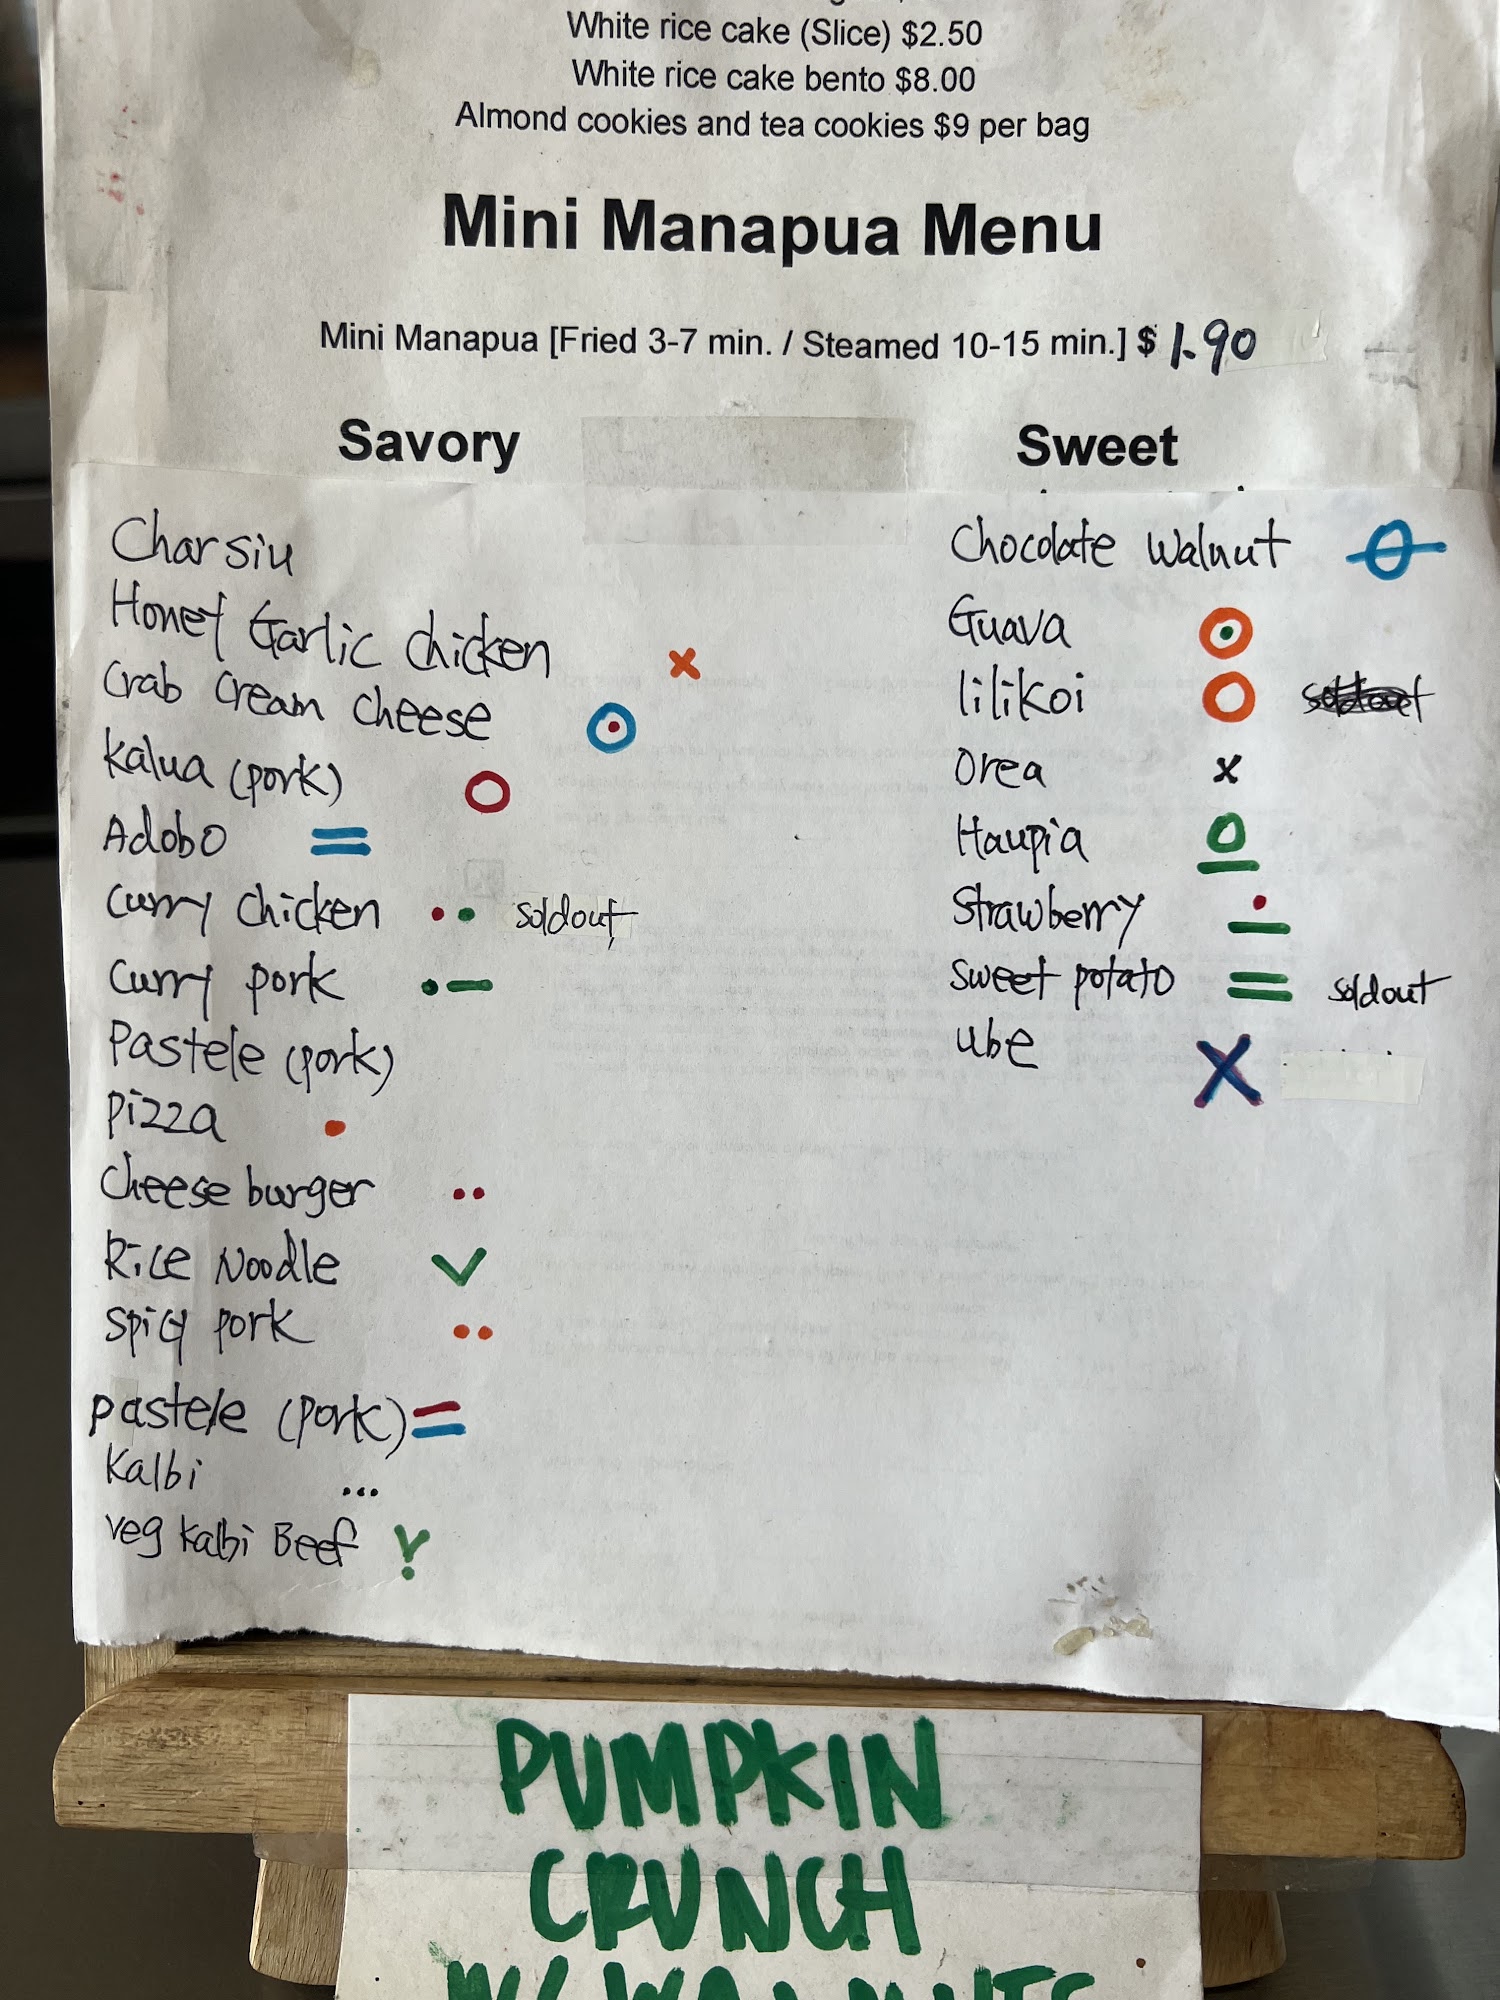 White rice cake (Slice) $2.50
White rice cake bento $8.00
Almond cookies and tea cookies $9 per bag
Mini Manapua Menu
Mini Manapua [Fried 3-7 min. / Steamed 10-15 min.] $ 1.90
Savory
Char siu
Honey Garlic chicken
Crab cream cheese
Kalua (pork)
Adobo
Curry chicken soldout
Curry pork
Pastele (pork)
Pizza
Cheese burger
Rice Noodle
Spicy pork
Pastele (pork)
Kalbi
Veg Kalbi Beef
Sweet
Chocolate Walnut
Guava
lilikoi
Orea
Haupia
Strawberry
Sweet potato soldout
ube
PUMPKIN
CRUNCH
W/ WALNUTS